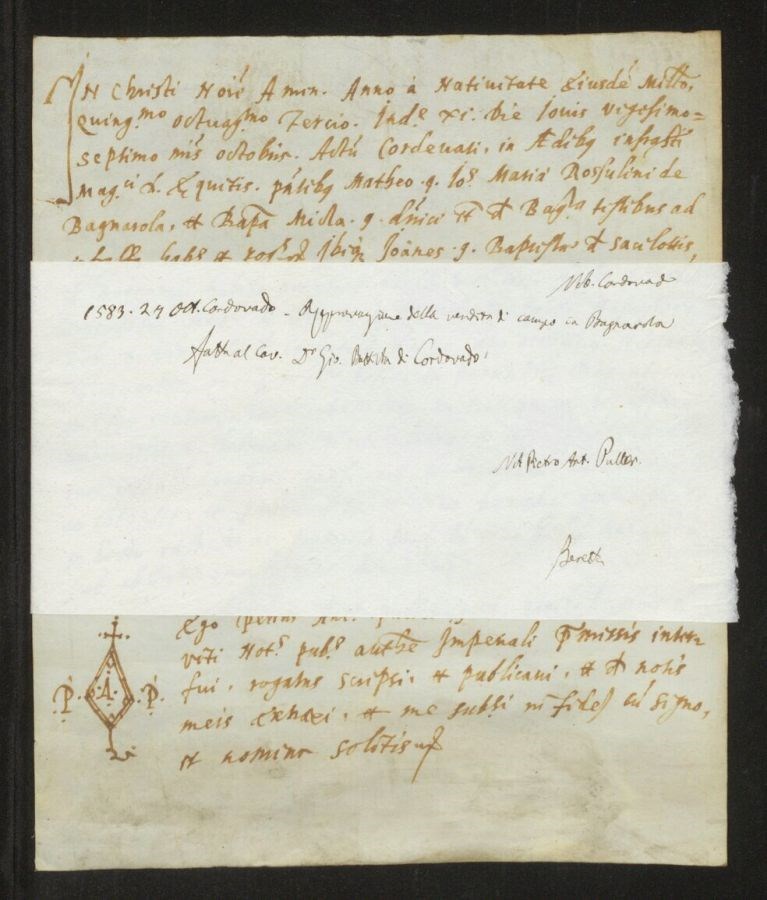 IN Christi Noīe Amen. Anno à Nativitate Eiusdē Millo,
Quing.mo octuag.mo Tercio. Ind.e xi. Die Iovis vigesimo=
septimo mīs octobris. Actū Cordevati, in Ædibq infrasti
Mag.ci D. Equitis. pñtibq Matheo .q. Io: Maria Rossulini de
Bagnarola, et Bapta .q. dñici de Bag.la testibus ad
Ibiq Ioānes .q. Baptista de
Nob. Cordovad
1583. 27 Ott. Cordovado - Approvazione della vendita di campo in Bagnarola
fatta al Cav. Dr Gio. Battista di Cordovado.
Not Pietro Ant.
Ego Petrus Ant.
viti Not.s pub.s auth.te Imperiali p̄missis inter=
fui, rogatus scripsi, et publicavi, et notis
meis extraxi, et me subsi fidē cū signo,
et nomine solitis
.P. .A. .P.